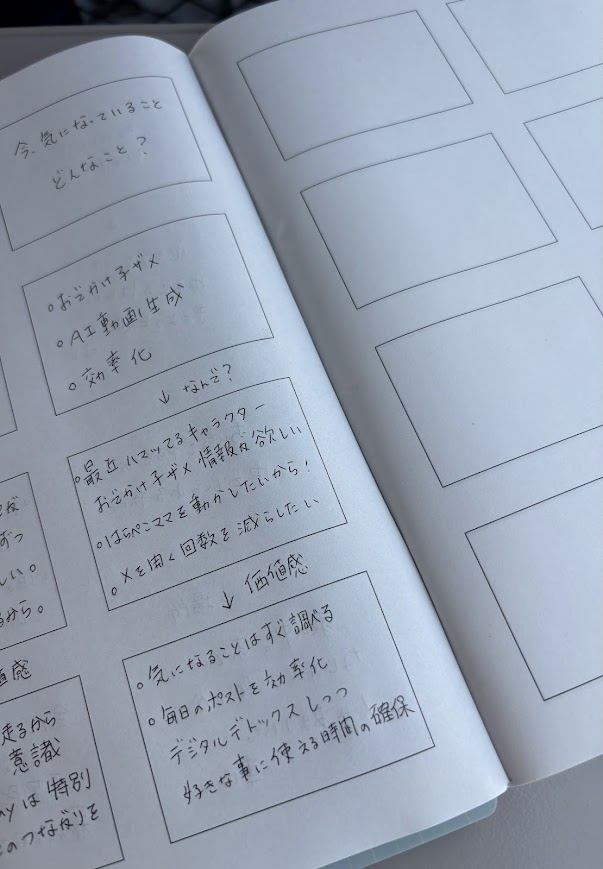 今、気になっていること
どんなこと？
。おでかけ子ザメ
。AI動画生成
。効率化
↓ なんで？
。最近ハマッてるキャラクター
おでかけ子ザメ 情報が欲しい
。はらぺこママを動かしたいから！
。Xを開く回数を減らしたい
↓ 価値感
。気になることはすぐ調べる
。毎日のポストを効率化
デジタルデトックスしつつ
好きな事に使える時間の確保
ずつ
しい。
るから。
値感
走るから
意識
ayは特別
とのつながりを